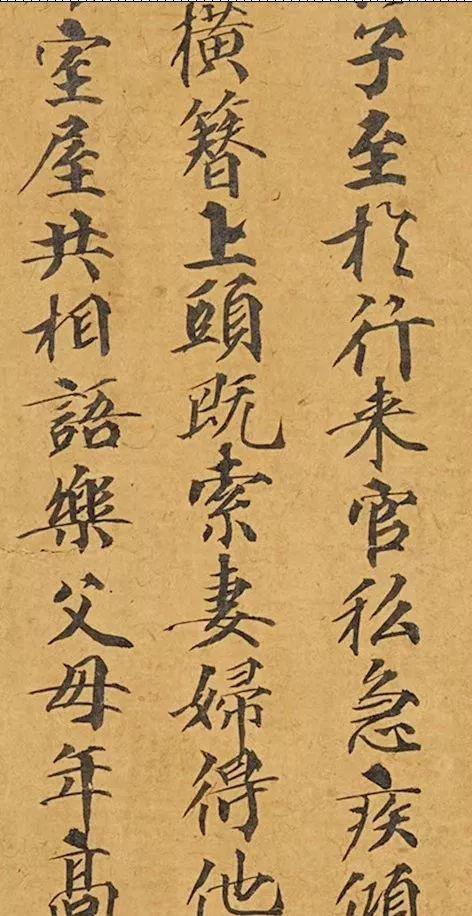 子至於行来官私急疾傾
橫簪上頭既索妻婦得他
室屋共相語樂父母年高